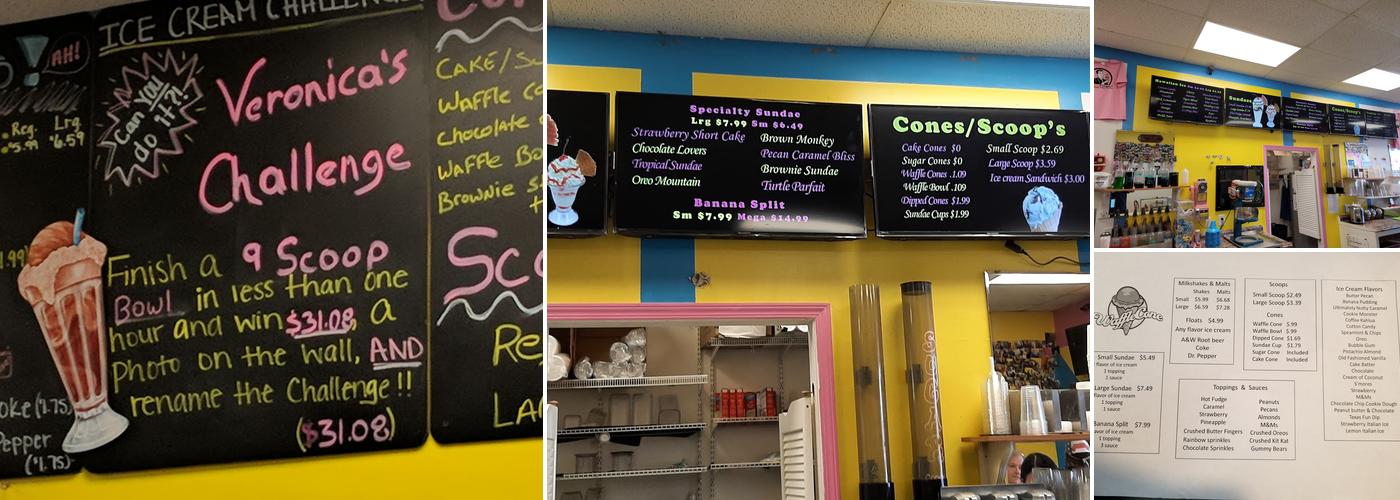 AH!
Reg. Lrg.
5.99 6.59
ICE CREAM CHALLENGE
Can YOU
do it?!
Veronica's
Challenge
Finish a 9 Scoop
Bowl in less than one
hour and win $31.08, a
Photo on the wall, AND
rename the Challenge!!
($31.08)
(1.75)
Pepper
(1.75)
CAKE/Su
Waffle Co
Chocolate
Waffle Bo
Brownie S
Sco
Re
LA
Specialty Sundae
Lrg $7.99 Sm $6.49
Strawberry Short Cake
Chocolate Lovers
Tropical Sundae
Oreo Mountain
Brown Monkey
Pecan Caramel Bliss
Brownie Sundae
Turtle Parfait
Banana Split
Sm $7.99 Mega $14.99
Cones/Scoop's
Cake Cones $0
Sugar Cones $0
Waffle Cones .1.09
Waffle Bowl .109
Dipped Cones $1.99
Sundae Cups $1.99
Small Scoop $2.69
Large Scoop $3.59
Ice cream Sandwich $3.00
Hawaiian Ice
Sundaes
Cones/Scoop's
Waffle Cone
Small Sundae $5.49
flavor of ice cream
1 topping
1 sauce
Large Sundae $7.49
flavor of ice cream
1 topping
1 sauce
Banana Split $7.99
flavor of ice cream
1 topping
3 sauce
Milkshakes & Malts
Shakes Malts
Small $5.99 $6.68
Large $6.59 $7.28
Floats $4.99
Any flavor ice cream
A&W Root beer
Coke
Dr. Pepper
Scoops
Small Scoop $2.49
Large Scoop $3.39
Cones
Waffle Cone $.99
Waffle Bowl $.99
Dipped Cone $1.69
Sundae Cup $1.79
Sugar Cone Included
Cake Cone Included
Toppings & Sauces
Hot Fudge
Caramel
Strawberry
Pineapple
Crushed Butter Fingers
Rainbow sprinkles
Chocolate Sprinkles
Peanuts
Pecans
Almonds
M&Ms
Crushed Oreos
Crushed Kit Kat
Gummy Bears
Ice Cream Flavors
Butter Pecan
Banana Pudding
Ultimately Nutty Caramel
Cookie Monster
Coffee Kahlua
Cotton Candy
Spearmint & Chips
Oreo
Bubble Gum
Pistachio Almond
Old Fashioned Vanilla
Cake Batter
Chocolate
Cream of Coconut
S'mores
Strawberry
M&Ms
Chocolate Chip Cookie Dough
Peanut butter & Chocolate
Texas Fun Dip
Strawberry Italian Ice
Lemon Italian Ice